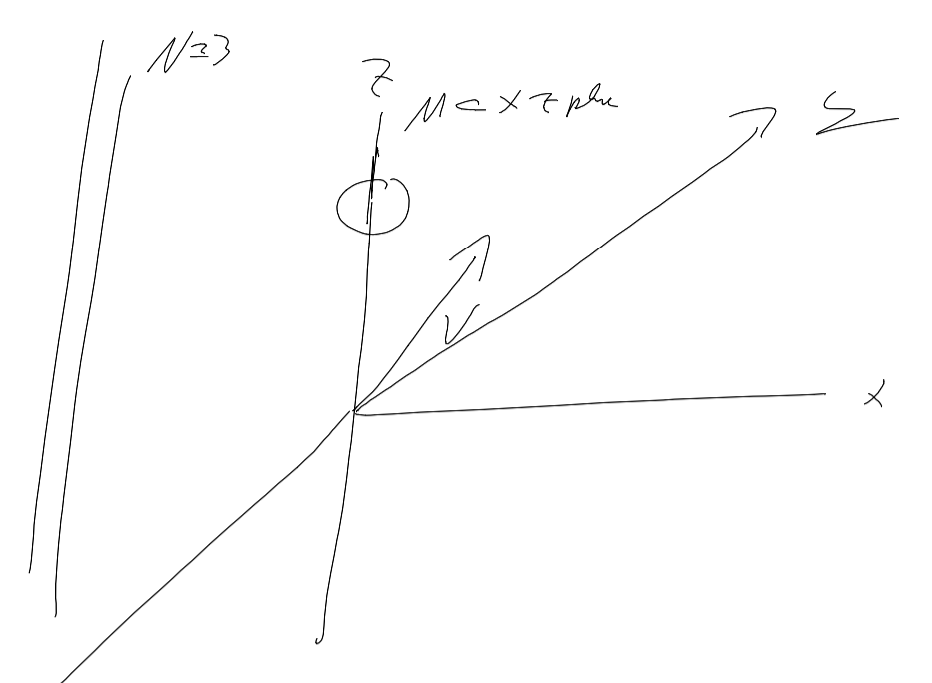 N=3
Z
M ⊂ XZ plane
S
V
X